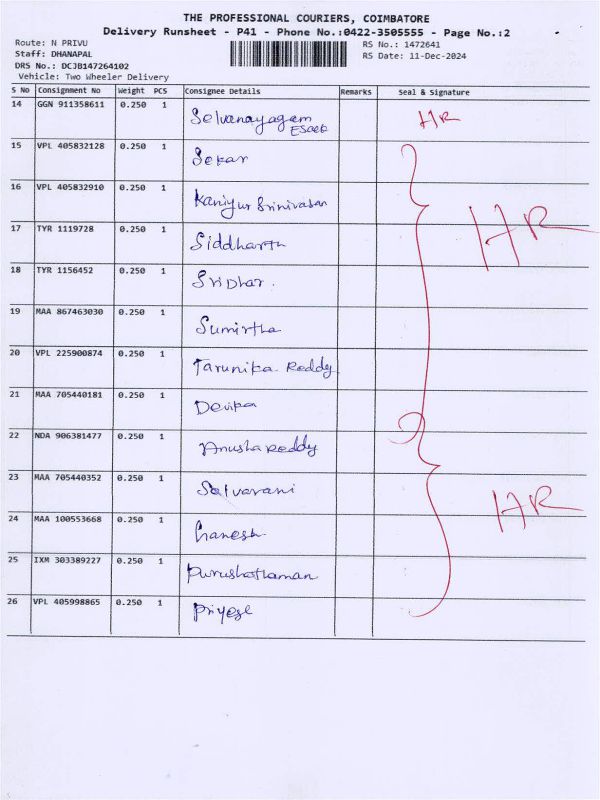 THE PROFESSIONAL COURIERS, COIMBATORE
Delivery Runsheet - P41 - Phone No.:0422-3505555 - Page No.:2
Route: N PRIVU
RS No.: 1472641
Staff: DHANAPAL
RS Date: 11-Dec-2024
DRS No.: DCJB147264102
Vehicle: Two Wheeler Delivery
S No Consignment No Weight PCS Consignee Details Remarks Seal & Signature
14 GGN 911358611 0.250 1 Selvanayagam HR
15 VPL 405832128 0.250 1 Sekar
16 VPL 405832910 0.250 1 Kaniyur Srinivasan HR
17 TYR 1119728 0.250 1 Siddharth
18 TYR 1156452 0.250 1 SriDhar.
19 MAA 867463030 0.250 1 Sumirtha
20 VPL 225900874 0.250 1 Tarunika Reddy
21 MAA 705440181 0.250 1 Devika
22 NDA 906381477 0.250 1 Anusha Reddy
23 MAA 705440352 0.250 1 Selvarani HR
24 MAA 100553668 0.250 1 Ganesh
25 IXM 303389227 0.250 1 Purushothaman
26 VPL 405998865 0.250 1